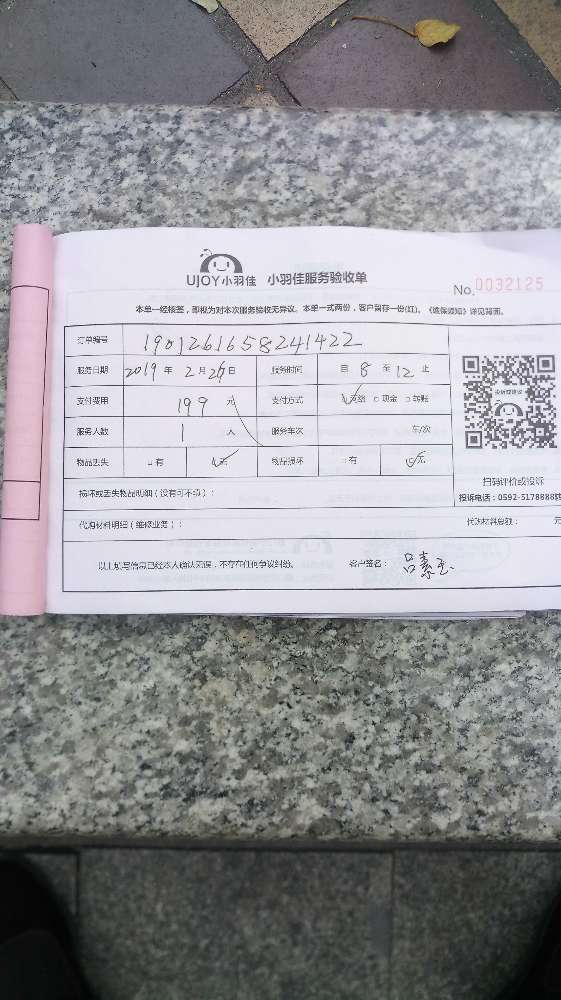 UJOY小羽佳 小羽佳服务验收单
No.0032125
本单一经核签，即视为对本次服务验收无异议。本单一式两份，客户留存一份(红)。《维保须知》详见背面。
订单编号 1901261658241422
服务日期 2019 年 2 月 日 服务时间 自 8 至 12 止
支付费用 199 元 支付方式 现金 转账
服务人数 1 人 服务车次 车/次
物品丢失 有 无 物品损坏 有 无
投诉或建议
扫码评价或投诉
投诉电话：0592-5178888
损坏或丢失物品明细（没有可不填）：
代购材料明细（维修业务）： 代购材料总额： 元
以上填写信息已经本人确认无误，不存在任何争议纠纷。 客户签名： 吕素玉